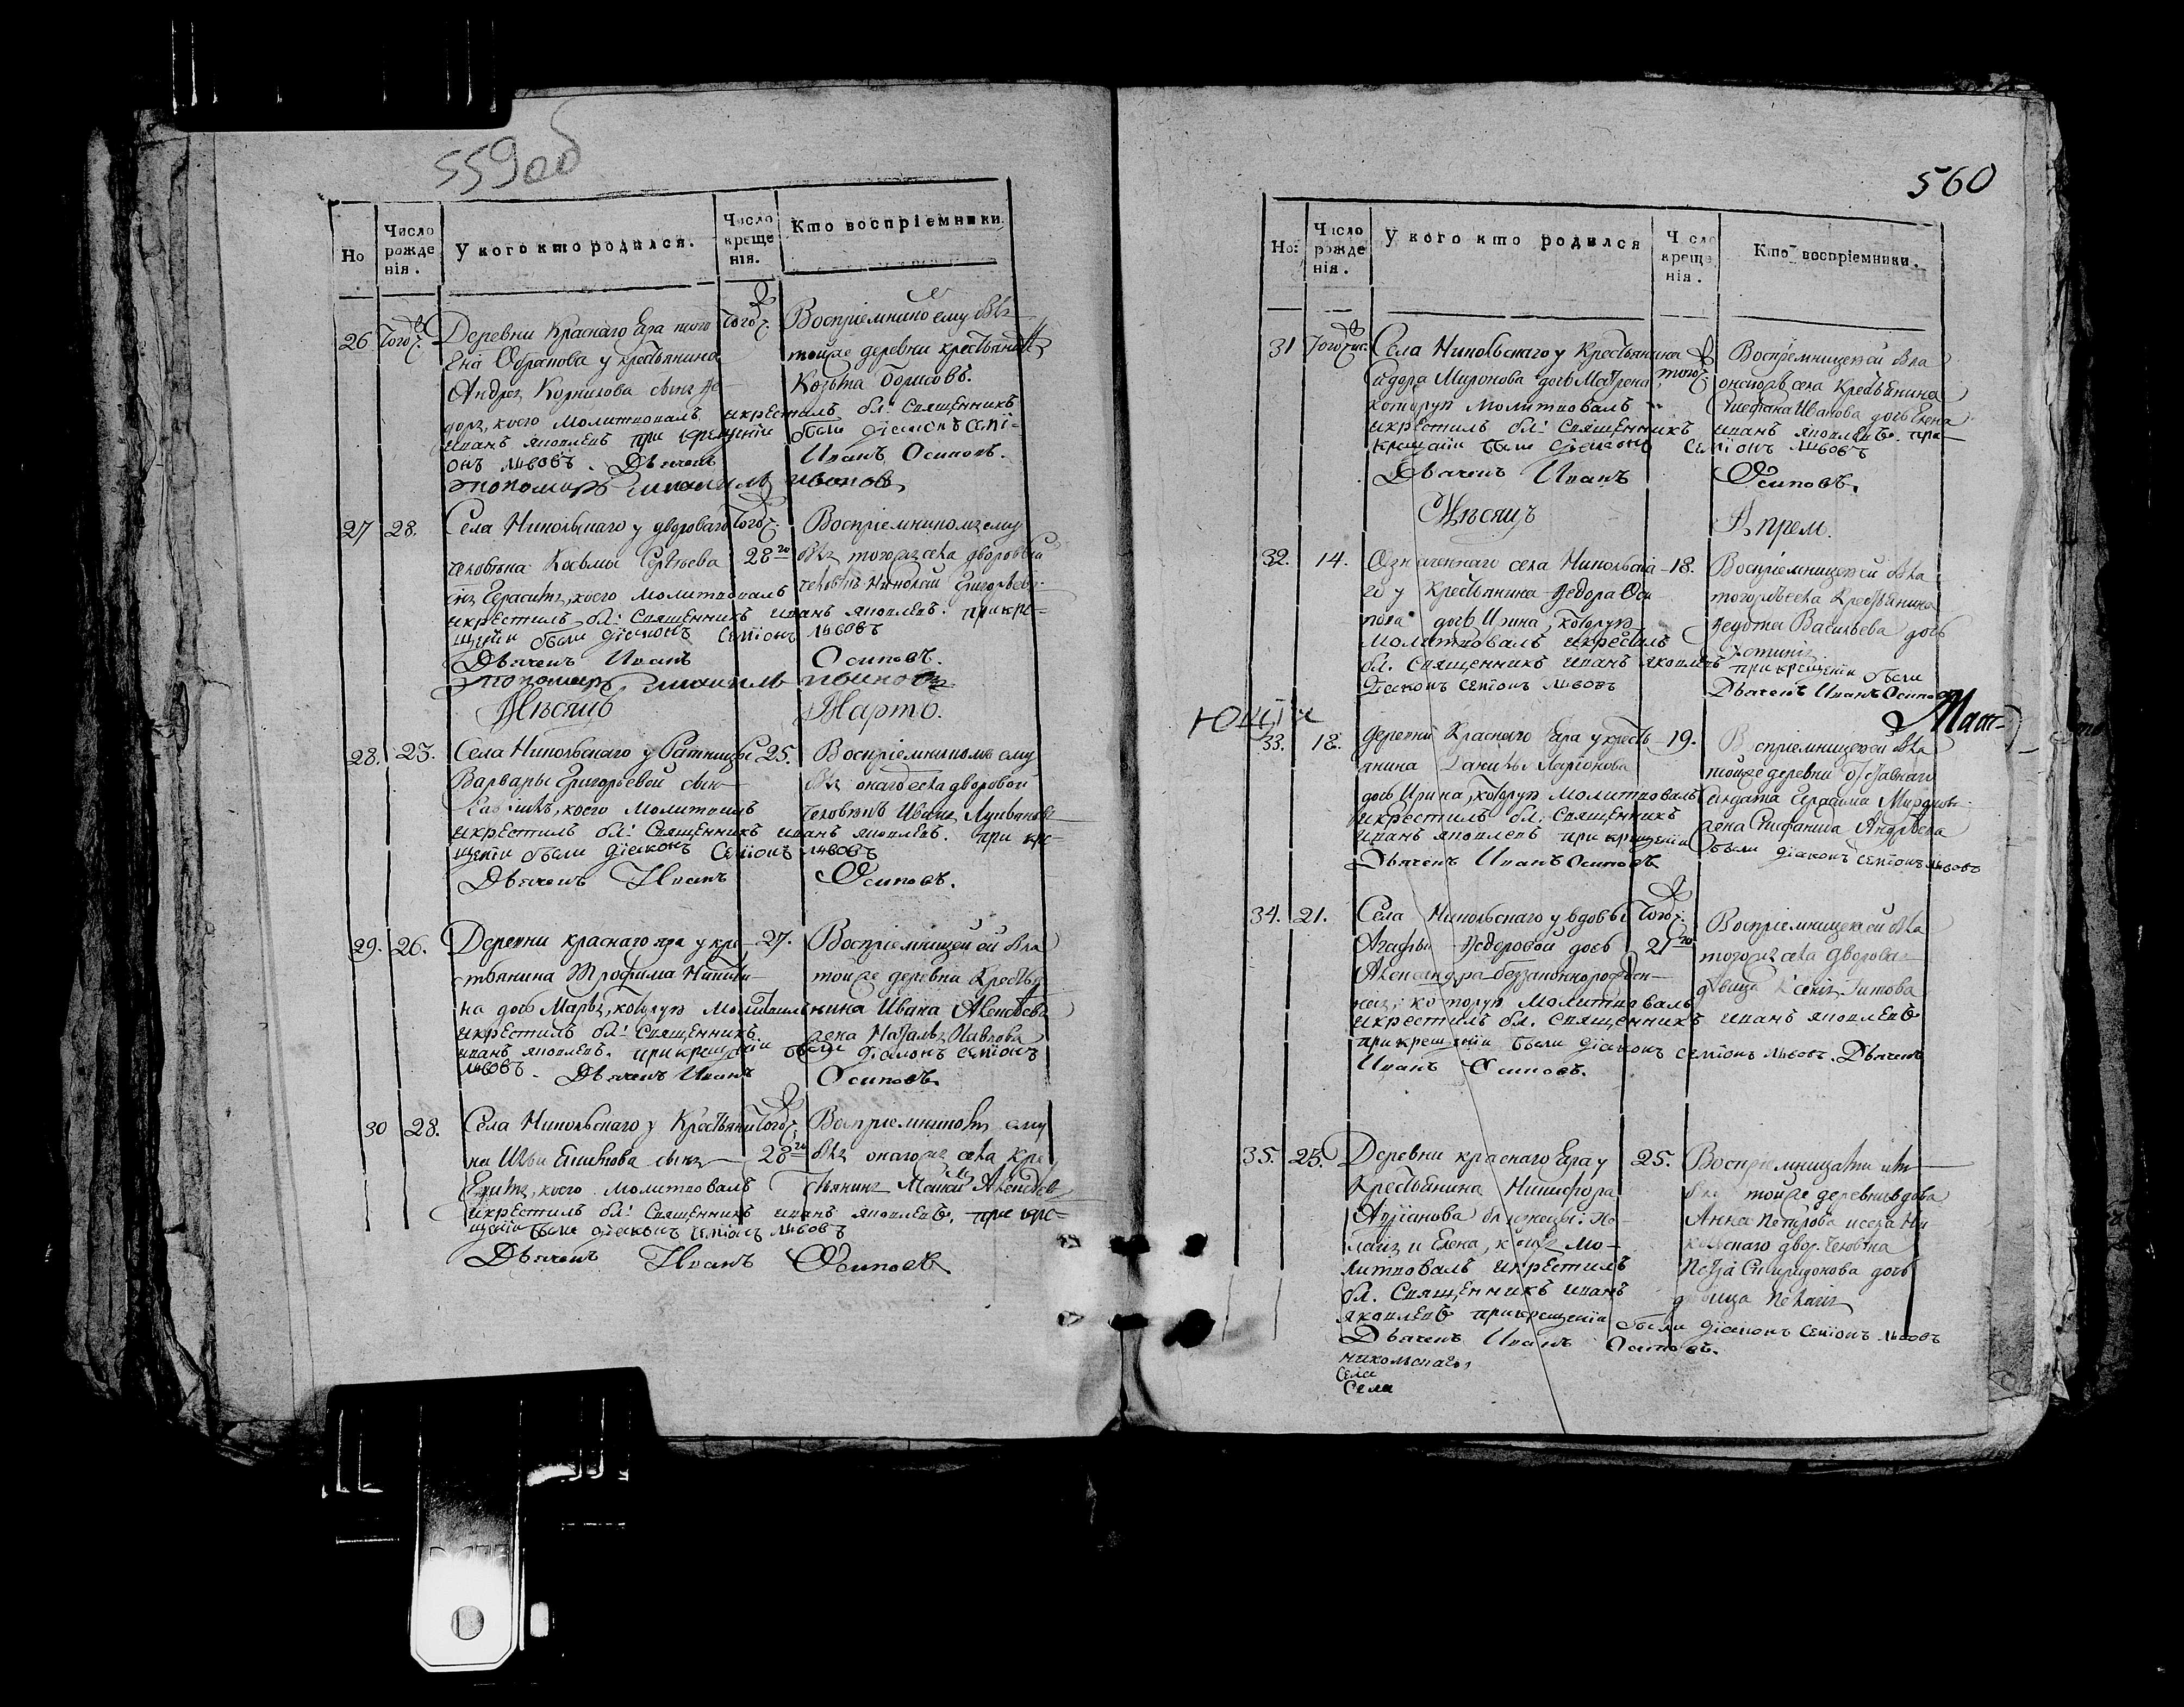 559об
Но
Число рожде нія.
У кого кто родился.
Число креще нія.
Кто воспріемники.
26 Того ж. Деревни Краснаго Яра того Того ж. Воспріемникъ ему былъ
Обранова у крестьянина тойже деревни крестьянинъ
Андрея Корнилова сынъ Ѳе- Козьма Борисовъ.
доръ, коего молитвовалъ и крестилъ бл: священникъ
иванъ яковлевъ при крещеніи были діаконъ семі-
онъ львовъ. Дьячекъ Иванъ Осиповъ.
пономарь иванов
27 28. Села Никольскаго у двороваго Того ж. Воспріемникомъ ему
человѣка Косьмы Сергѣева 28го былъ тогожъ села дворовый
сынъ Герасимъ, коего молитвовалъ человѣкъ Николай Григорьевъ
и крестилъ бл: священникъ иванъ яковлевъ. при кре-
щеніи были діаконъ семіонъ львовъ
Дьячекъ Иванъ Осиповъ.
пономарь
Мѣсяцъ Мартъ.
28. 23. Села Никольскаго у Ратницы 25. Воспріемникомъ ему
Варвары Григорьевой сынъ былъ онаго села дворовой
коего молитвовалъ человѣкъ Иванъ
и крестилъ бл: священникъ иванъ яковлевъ. при кре-
щеніи были діаконъ семіонъ львовъ
Дьячекъ Иванъ Осиповъ.
29. 26. Деревни краснаго яра у кре- 27. Воспріемницей ей была
стьянина Трофима Никити- тойже деревни крестья-
на дочь Марья, которую молитвовалъ нина Ивана Алексѣева
и крестилъ бл: священникъ жена Наталья Павлова
иванъ яковлевъ. при крещеніи были діаконъ семіонъ
львовъ. Дьячекъ Иванъ Осиповъ.
30 28. Села Никольскаго у Крестьяни Того ж. Воспріемникомъ ему
на Ильи сынъ 28го былъ онагожъ села кре
коего молитвовалъ стьянинъ Алексѣевъ
и крестилъ бл: священникъ иванъ яковлевъ. при кре-
щеніи были діаконъ семіонъ львовъ
Дьячекъ Иванъ Осиповъ.
560
Но:
Число рожде нія.
У кого кто родился
Число креще нія.
Кто воспріемники.
31 Того чис. Села Никольскаго у Крестьянина того ж. Воспріемницею ей была
Сидора Миронова дочь Матрена, онагожъ села Крестьянина
которую молитвовалъ Стефана Иванова дочь Елена
и крестилъ бл: священникъ иванъ яковлевъ. при
крещеніи были діаконъ семіонъ львовъ
Дьячекъ Иванъ Осиповъ.
Мѣсяцъ Апрель.
32. 14. Означеннаго села Никольска- 18. Воспріемницею ей была
го у Крестьянина Ѳедора Оси тогожъ села Крестьянина
пова дочь Ирина, которую Васильева дочь
молитвовалъ и крестилъ
бл. священникъ иванъ яковлевъ при крещеніи были
Діаконъ семіонъ львовъ Дьячекъ Иванъ Осиповъ
33. 18. Деревни Краснаго Яра у кресть 19. Воспріемницею ей была
янина Данилы Ларіонова тойже деревни отставнаго
дочь Ирина, которую молитвовалъ солдата Герасима Миронова
и крестилъ бл. священникъ жена Епифанида Андрѣева
иванъ яковлевъ при крещеніи были діаконъ семіонъ львовъ
Дьячекъ Иванъ Осиповъ
34. 21. Села Никольскаго у вдовы Того ж. Воспріемницею ей была
Агафьи Ѳедоровой дочь 21го тогожъ села дворовая
Александра беззаконнорожден- дѣвица Ксенія Титова
ная, которую молитвовалъ
и крестилъ бл. священникъ иванъ яковлевъ
при крещеніи были діаконъ семіонъ львовъ. Дьячекъ
Иванъ Осиповъ.
35. 25. Деревни краснаго Яра у 25. Воспріемницами имъ
Крестьянина Никифора были тойже деревни вдова
близнецы: Пе- Анна Петрова и села Ни-
лагія и Елена, коихъ мо- кольскаго двор. человѣка
литвовалъ и крестилъ Петра Спиридонова дочь
бл. священникъ иванъ дѣвица Пелагія
яковлевъ при крещеніи были діаконъ семіонъ львовъ
Дьячекъ Иванъ Осиповъ.
никольскаго,
села
Села